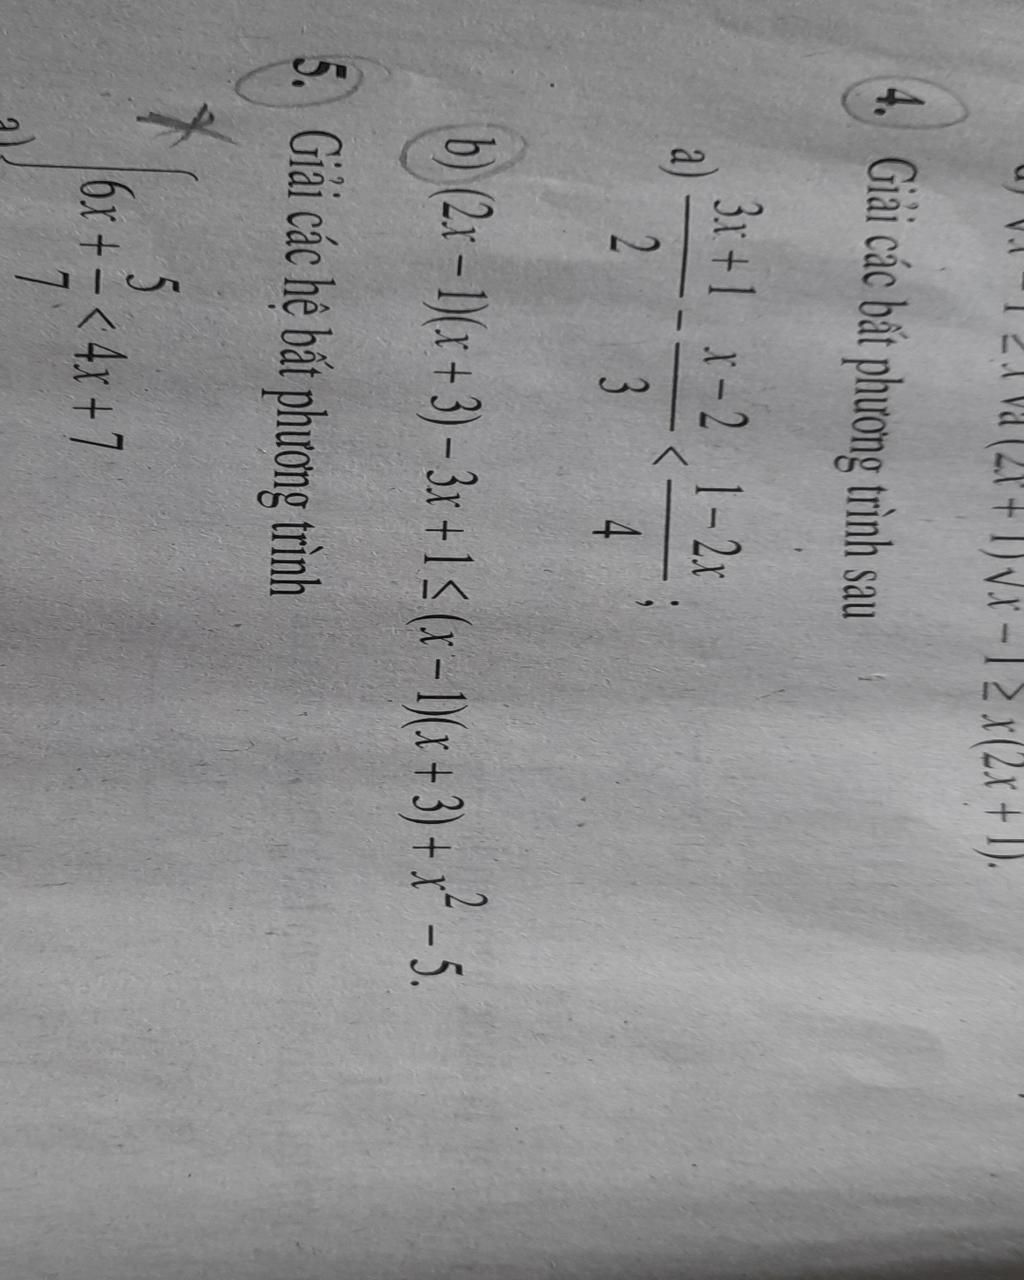 √x – 1 ≥ x và (2x + 1)√x – 1 ≥ x(2x + 1).
4. Giải các bất phương trình sau
a) (3x + 1)/2 - (x – 2)/3 < (1 – 2x)/4 ;
b) (2x – 1)(x + 3) – 3x + 1 ≤ (x – 1)(x + 3) + x² – 5.
5. Giải các hệ bất phương trình
a) { 6x + 5/7 < 4x + 7